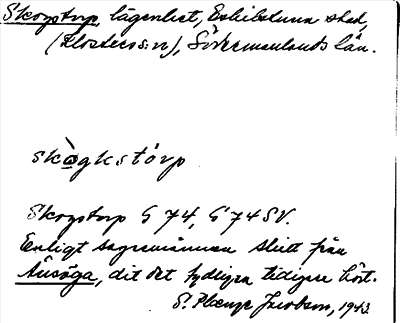 Skogstorp, lägenhet, Eskilstuna stad,
(Klosters sn), Södermanlands län.
skògkstórp
Skogstorp G 74, G 74 SV.
Enligt sagesmannen skilt från
, dit det tydligen tidigare hört.
S. Jacobson, 1943